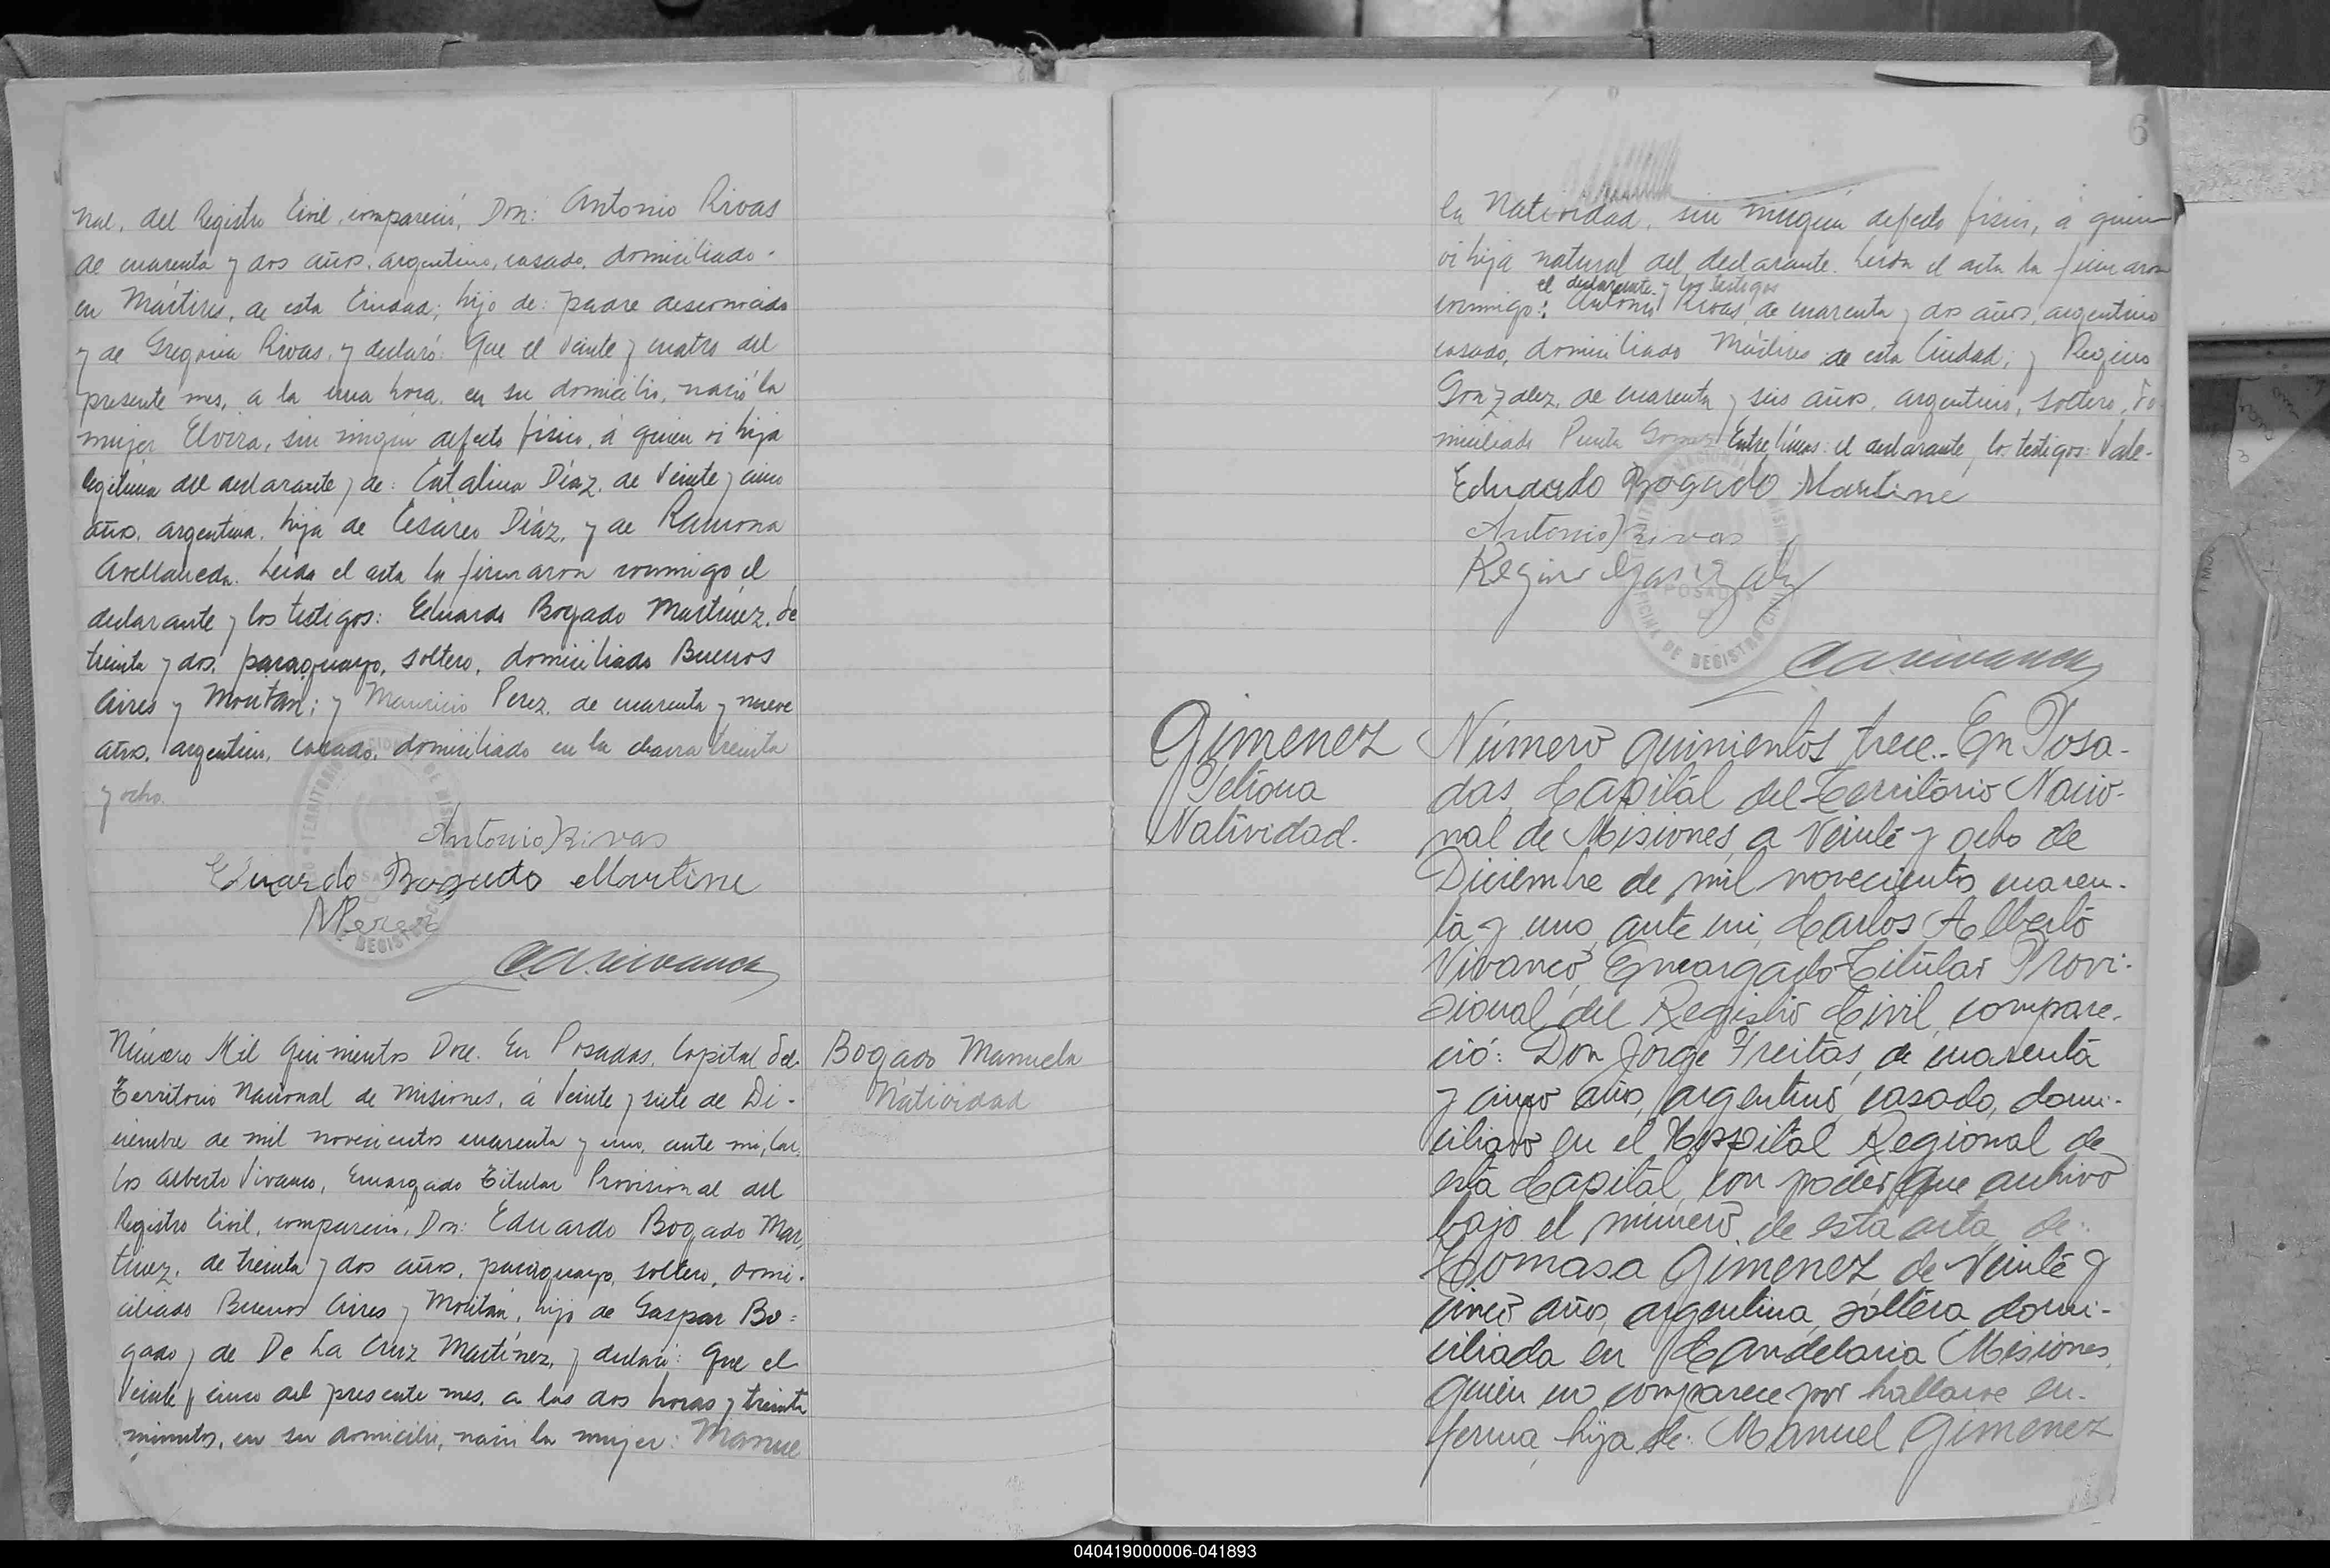 nal, del Registro Civil, compareció, Don: Antonio Rivas
de cuarenta y dos años, argentino, casado, domiciliado
en Mártires, de esta Ciudad; hijo de: padre desconocido
y de Gregoria Rivas, y declaró: Que el veinte y cuatro del
presente mes, a la una hora, en su domicilio, nació la
mujer Elvira, sin ningún defecto físico, á quien vi hija
legítima del declarante y de: Catalina Díaz, de veinte y cinco
años, argentina, hija de Cesáreo Díaz, y de Ramona
Avellaneda. Leida el acta la firmaron conmigo el
declarante y los testigos: Eduardo Bogado Martínez, de
treinta y dos, paraguayo, soltero, domiciliado Buenos
Aires y Moritán; y Mauricio Perez, de cuarenta y nueve
años, argentino, casado, domiciliado en la chacra treinta
y ocho.
Antonio Rivas
Eduardo Bogado Martine
MPerez
Número Mil Quinientos Doce. En Posadas, Capital del
Territorio Nacional de Misiones, á veinte y siete de Di-
ciembre de mil novecientos cuarenta y uno, ante mi, Car
los Alberto Vivanco, Encargado Titular Provisional del
Registro Civil, compareció, Don: Eduardo Bogado Mar
tínez, de treinta y dos años, paraguayo, soltero, domi-
ciliado Buenos Aires y Moritán, hijo de Gaspar Bo=
gado y de De La Cruz Martínez, y declaró: Que el
veinte y cinco del presente mes, a las dos horas y treinta
minutos, en su domicilio, nació la mujer: Manue
Bogado Manuela
Natividad
6
la Natividad, sin ningún defecto físico, á quien
vi hija natural del declarante. Leida el acta la firmaron
el declarante y los testigos
conmigo: Antonio Rivas, de cuarenta y dos años, argentino
casado, domiciliado Mártires de esta Ciudad; y Regino
Gonzalez, de cuarenta y seis años, argentino, soltero, do
miciliado Punta Gomez. Entre líneas: el declarante y los testigos: Vale-
Eduardo Bogado Martine
Antonio Rivas
Regino Gonzalez
POSADAS
OFICINA DE REGISTRO CIVIL
Gimenez
Natividad.
Número quinientos trece.. En Posa-
das, Capital del Territorio Nacio-
nal de Misiones, a veinte y ocho de
Diciembre de mil novecientos cuaren-
ta y uno, ante mi, Carlos Alberto
Vivanco, Encargado Titular Provi-
sional del Registro Civil, compare-
ció: Don Jorge Freitas, de cuarenta
y cinco años, argentino, casado, domi-
ciliado en el Hospital Regional de
esta Capital, con poder que archivo
bajo el número de esta acta, de:
Tomasa Gimenez, de veinte y
cinco años, argentina, soltera, domi-
ciliada en Candelaria Misiones,
quien no comparece por hallarse en-
ferma, hija de: Manuel Gimenez
040419000006-041893